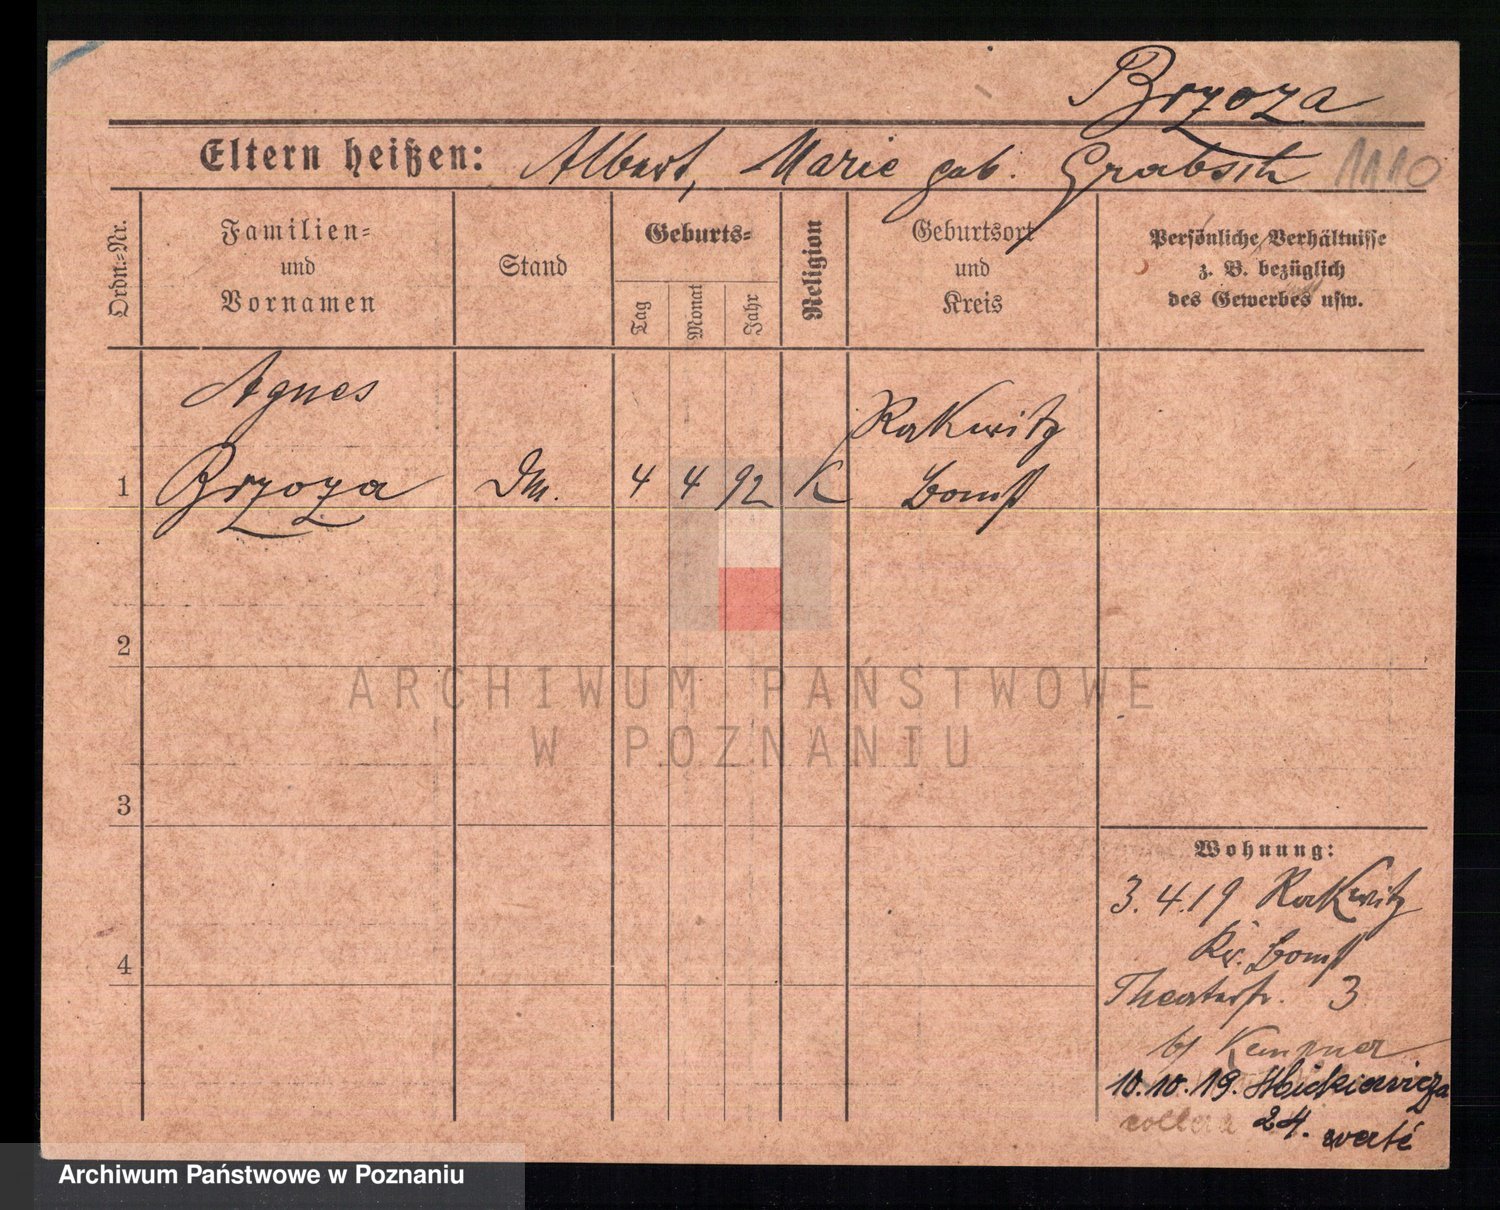 Brzoza
Eltern heißen: Albert, Marie geb. Grabsch 1110
Ordn.-Nr.
Familien-
und
Vornamen
Stand
Geburts-
Tag
Monat
Jahr
Religion
Geburtsort
und
Kreis
Persönliche Verhältnisse
z. B. bezüglich
des Gewerbes usw.
Agnes
Rakwitz
1 Brzoza Dm. 4 4 92 K Bomst
2
ARCHIWUM PAŃSTWOWE
W POZNANIU
3
Wohnung:
3.4.19 Rakwitz
Kr. Bomst
4
Theaterstr. 3
bei Kempner
10.10.19. Mickiewicza
24.
Archiwum Państwowe w Poznaniu